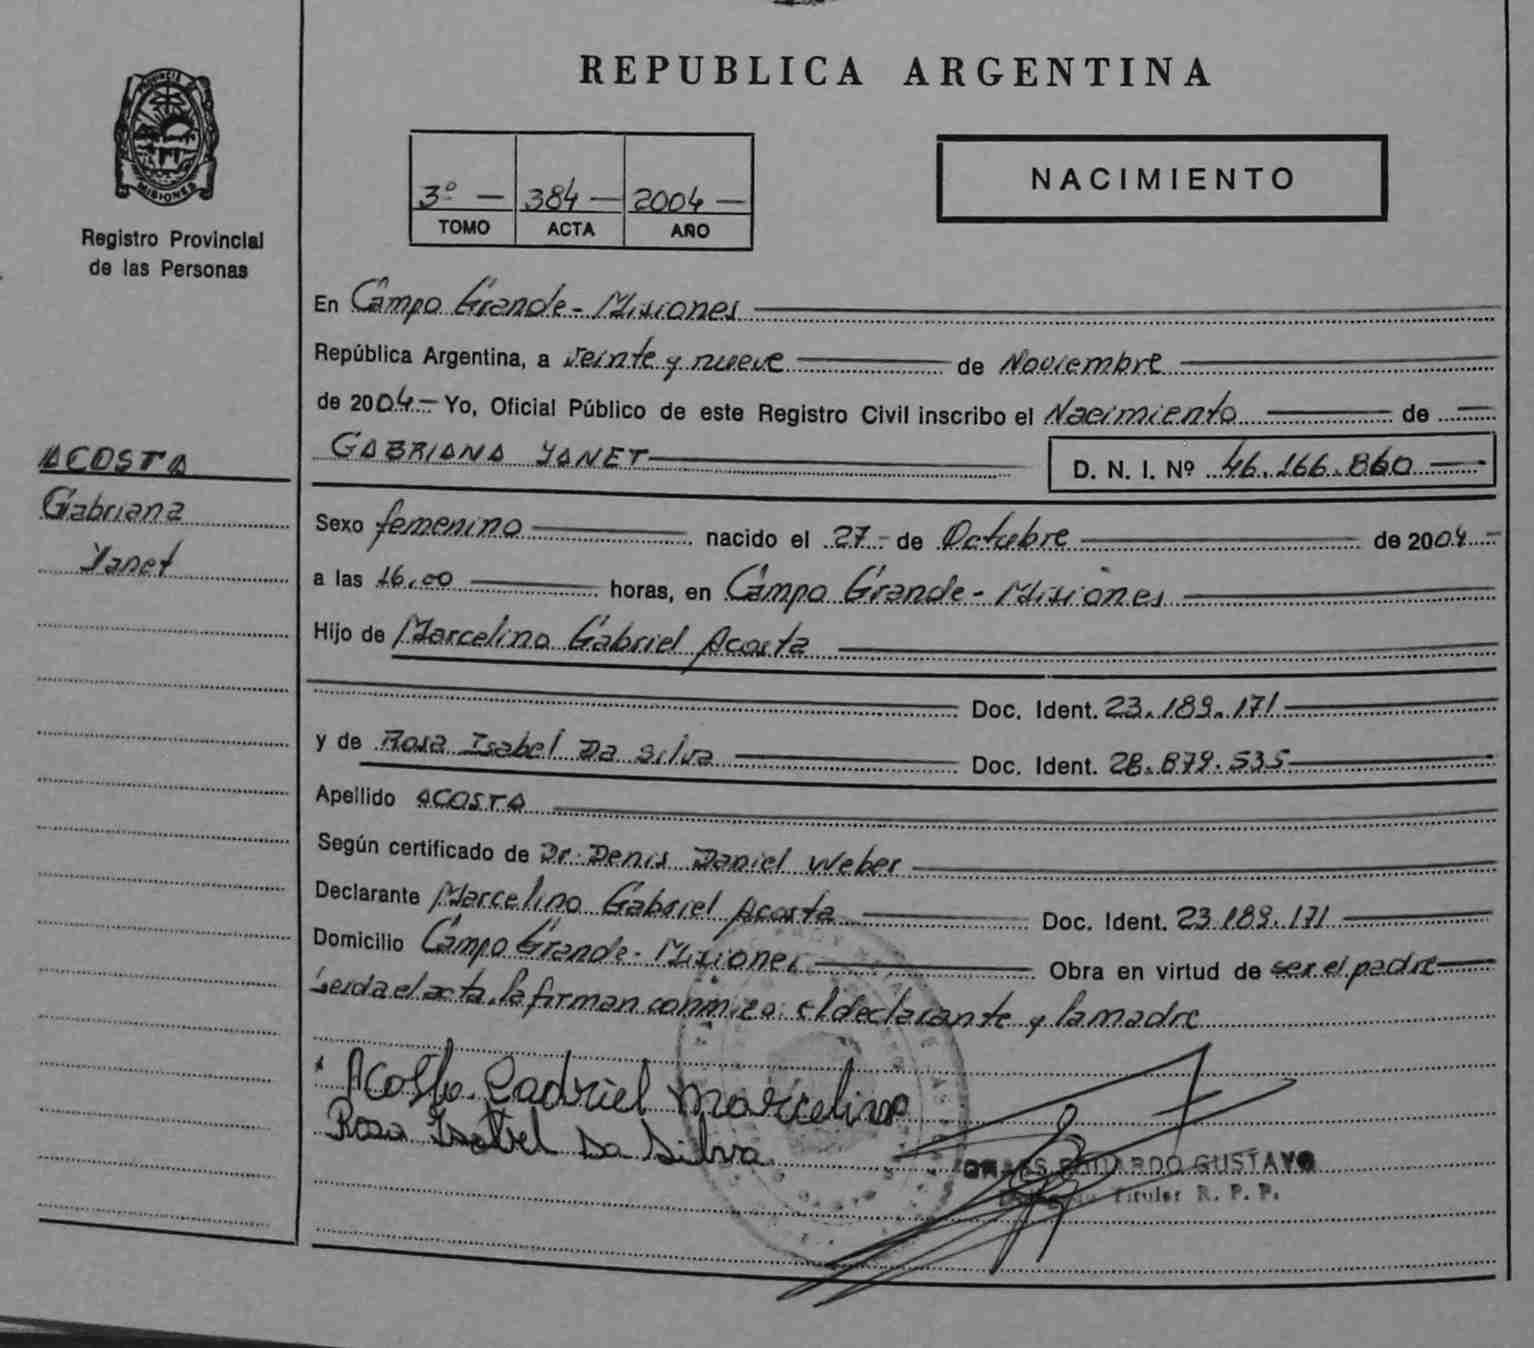 REPUBLICA ARGENTINA
PROVINCIA DE
MISIONES
Registro Provincial
de las Personas
3º — 384 — 2004 —
TOMO ACTA AÑO
NACIMIENTO
En Campo Grande - Misiones
República Argentina, a veinte y nueve de Noviembre
de 2004 - Yo, Oficial Público de este Registro Civil inscribo el Nacimiento de
GABRIANA YANET D. N. I. Nº 46.166.860
ACOSTA
Gabriana
Yanet
Sexo femenino nacido el 27 - de Octubre de 2004 -
a las 16,00 horas, en Campo Grande - Misiones
Hijo de Marcelino Gabriel Acosta
Doc. Ident. 23.189.171
y de Rosa Isabel Da Silva Doc. Ident. 28.879.535
Apellido ACOSTA
Según certificado de Dr. Denis Daniel Weber
Declarante Marcelino Gabriel Acosta Doc. Ident. 23.189.171
Domicilio Campo Grande - Misiones Obra en virtud de ser el padre
Leida el acta, la firman conmigo: el declarante y la madre
Acosta Gabriel Marcelino
Rosa Isabel Da Silva
EDUARDO GUSTAVO
Titular R. P. P.